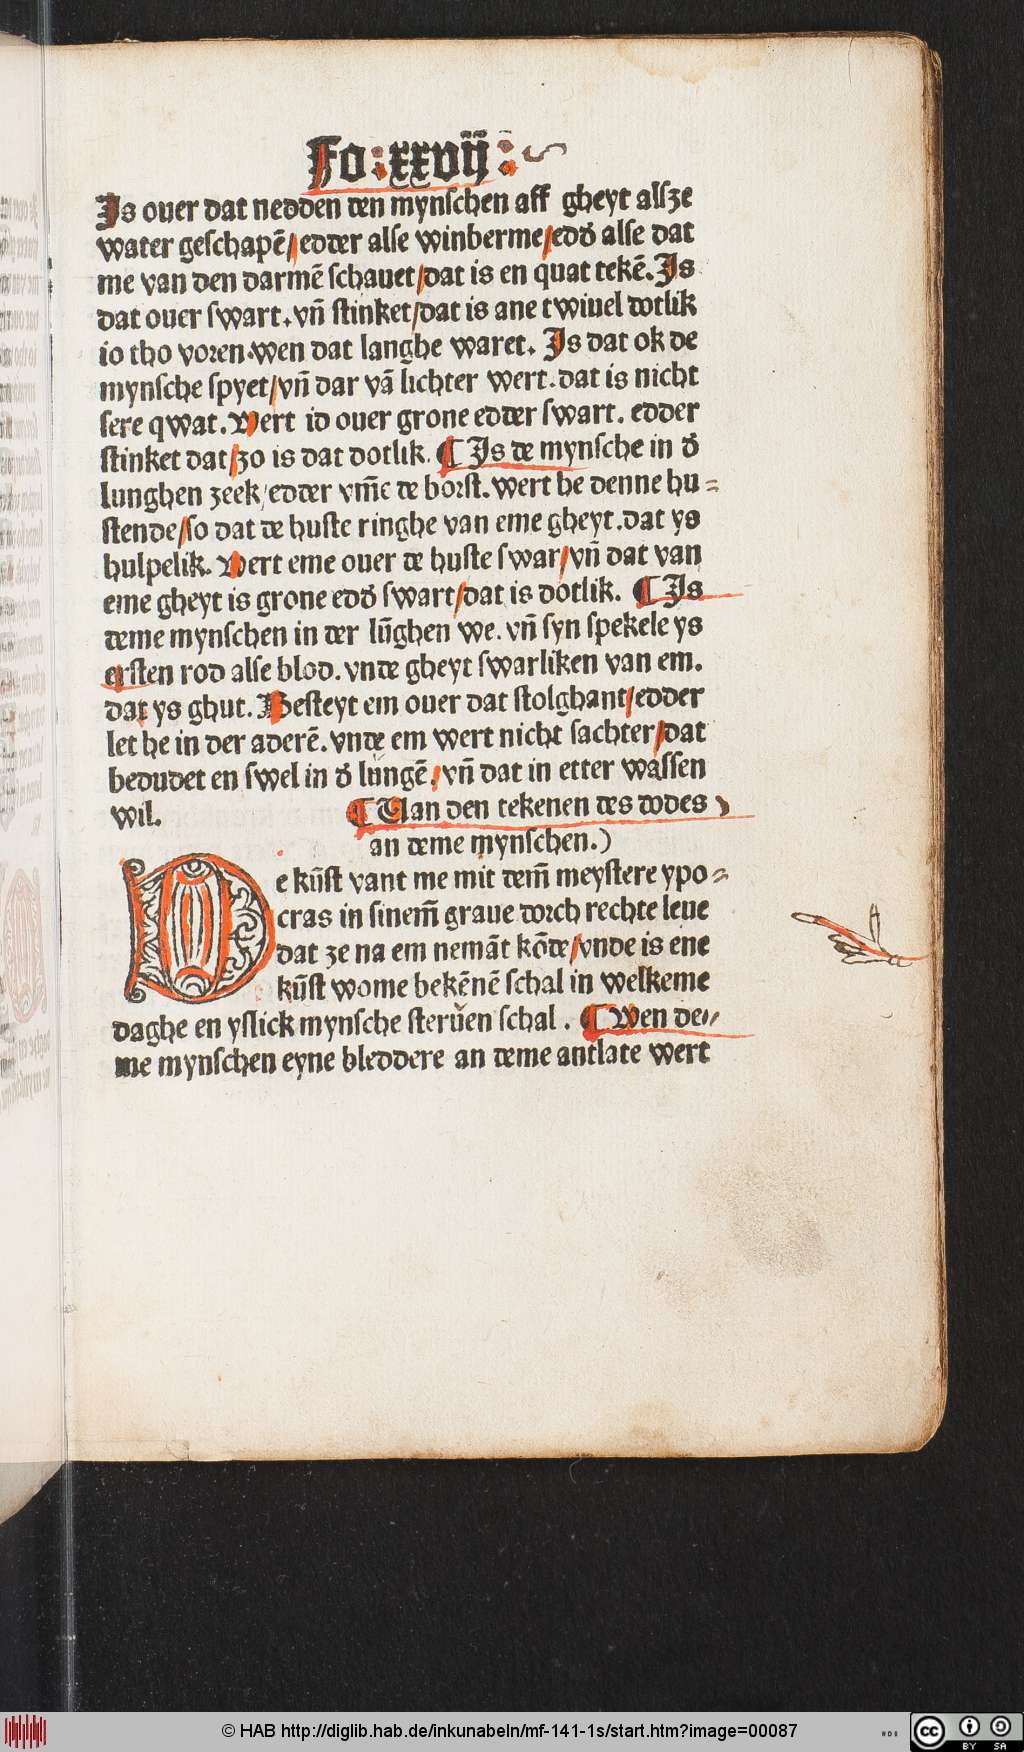 Fo:xxvij:
Js ouer dat nedden den mynschen aff gheyt alsze
water geschapē/edder alse winberme/edď alse dat
me van den darmē schauet/dat is en quat tekē. Js
dat ouer swart. vn̄ stinket/dat is ane twiuel dotlik
io tho voren. wen dat langhe waret. Js dat ok de
mynsche spyet/vn̄ dar vā lichter wert. dat is nicht
sere qwat. Wert id ouer grone edder swart. edder
stinket dat/zo is dat dotlik. ¶ Js de mynsche in ď
lunghen zeek/edder vm̄e de borst. wert he denne hu⸗
stende/so dat de huste ringhe van eme gheyt. dat ys
hulpelik. Wert eme ouer de huste swar/vn̄ dat van
eme gheyt is grone edď swart/dat is dotlik. ¶ Js
deme mynschen in der lūghen we. vn̄ syn spekele ys
ersten rod alse blod. vnde gheyt swarliken van em.
dat ys ghut. Besteyt em ouer dat stolghant/edder
let he in der aderē. vnde em wert nicht sachter/dat
bedudet en swel in ď lungē/vn̄ dat in etter wassen
wil. ¶ Uan den tekenen des dodes
an deme mynschen.)
De kūst vant me mit dem̄ meystere ypo⸗
cras in sinem̄ graue dorch rechte leue
dat ze na em nemāt kōde/vnde is ene
kūst wome bekēnē schal in welkeme
daghe en yslick mynsche steruen schal. ¶ Wen de⸗
me mynschen eyne bleddere an deme antlate wert
© HAB http://diglib.hab.de/inkunabeln/mf-141-1s/start.htm?image=00087
HAB
cc
BY SA